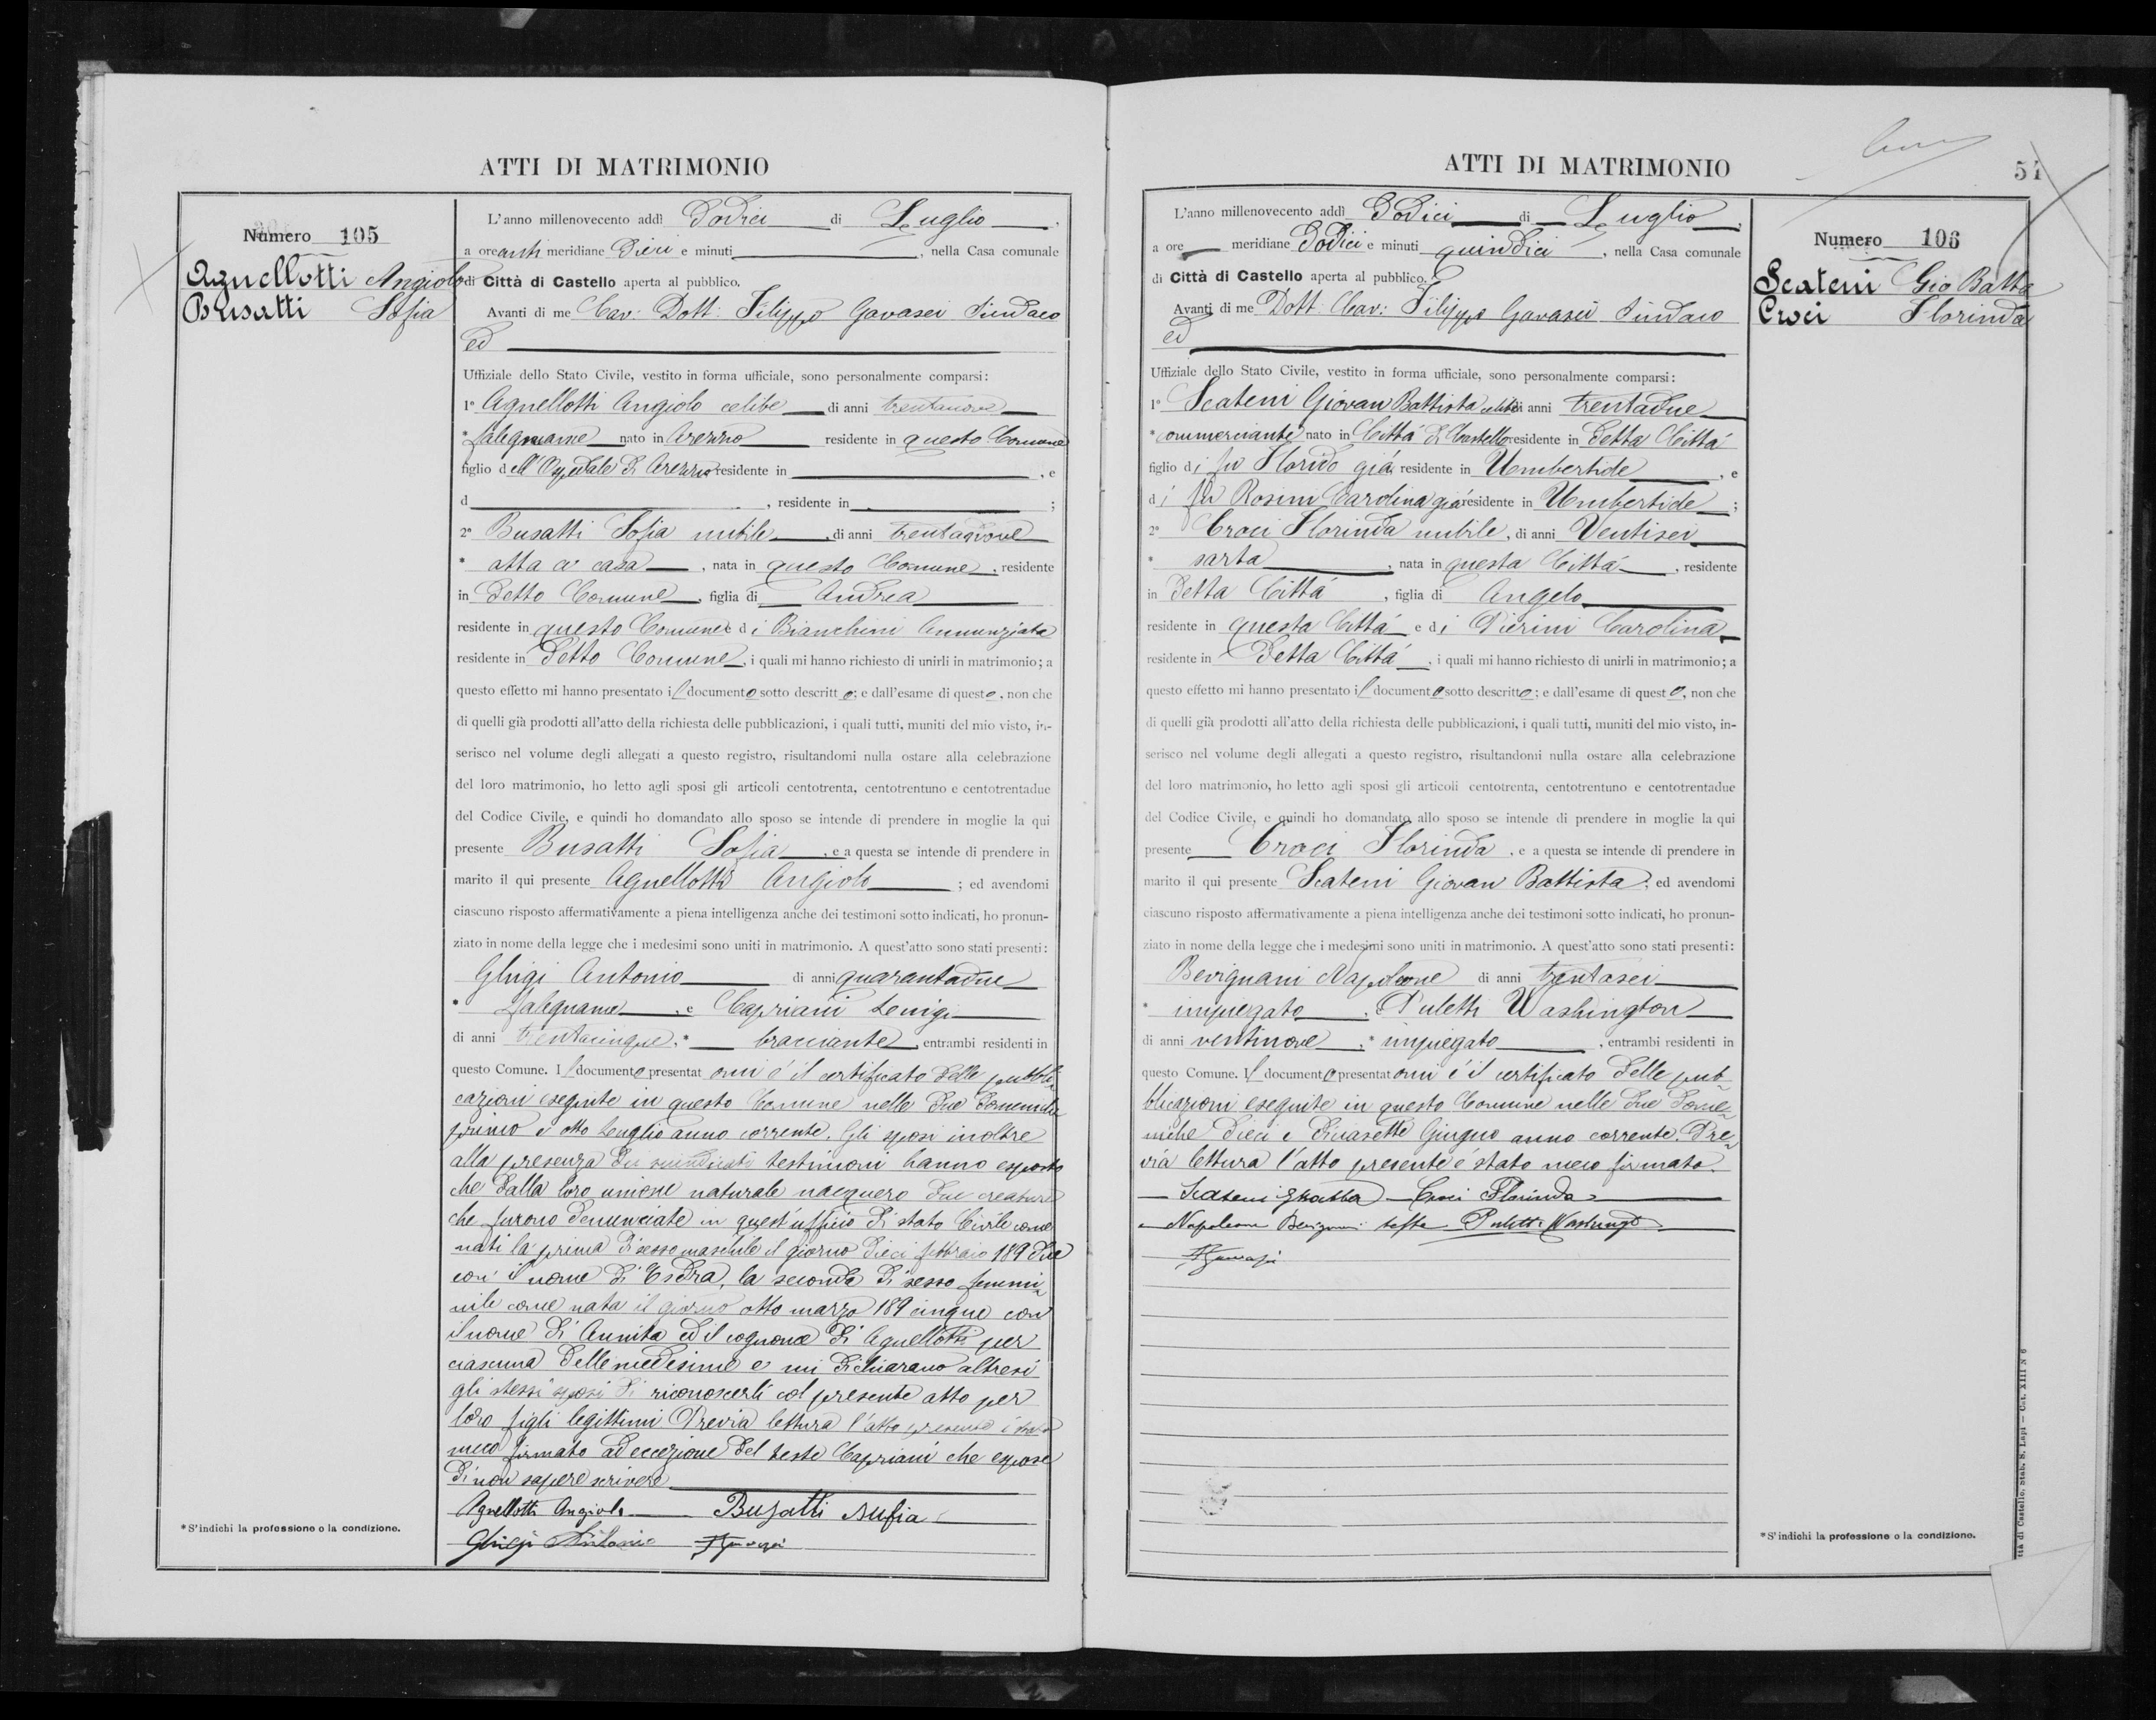 ATTI DI MATRIMONIO
Numero 105
Agnellotti Angiolo
Busatti Sofia
L'anno millenovecento addì Dodici di Luglio,
a ore anti meridiane Dieci e minuti , nella Casa comunale
di Città di Castello aperta al pubblico.
Avanti di me Cav: Dott: Filippo Gavasei Sindaco
ed
Uffiziale dello Stato Civile, vestito in forma ufficiale, sono personalmente comparsi:
1° Agnellotti Angiolo celibe di anni trentanove
* falegname nato in Arezzo residente in questo Comune
figlio dell'Ospedale di Arezzo residente in , e
d , residente in ;
2° Busatti Sofia nubile, di anni trentanove
* atta a casa, nata in questo Comune, residente
in detto Comune, figlia di Andrea
residente in questo Comune e di Bianchini Annunziata
residente in detto Comune, i quali mi hanno richiesto di unirli in matrimonio; a
questo effetto mi hanno presentato il documento sotto descritto; e dall'esame di questo, non che
di quelli già prodotti all'atto della richiesta delle pubblicazioni, i quali tutti, muniti del mio visto, in-
serisco nel volume degli allegati a questo registro, risultandomi nulla ostare alla celebrazione
del loro matrimonio, ho letto agli sposi gli articoli centotrenta, centotrentuno e centotrentadue
del Codice Civile, e quindi ho domandato allo sposo se intende di prendere in moglie la qui
presente Busatti Sofia, e a questa se intende di prendere in
marito il qui presente Agnellotti Angiolo; ed avendomi
ciascuno risposto affermativamente a piena intelligenza anche dei testimoni sotto indicati, ho pronun-
ziato in nome della legge che i medesimi sono uniti in matrimonio. A quest'atto sono stati presenti:
Ghigi Antonio di anni quarantadue
* falegname, e Capriani Luigi
di anni trentacinque, * bracciante, entrambi residenti in
questo Comune. Il documento presentatomi é il certificato delle pubbli-
cazioni eseguite in questo Comune nelle due domeniche
primo e otto Luglio anno corrente. Gli sposi inoltre
alla presenza dei suindicati testimoni hanno esposto
che dalla loro unione naturale nacquero due creature
che furono denunciate in quest'ufficio di stato Civile come
nati la prima di sesso maschile il giorno dieci febbraio 189 due
con il nome di Esdra, la seconda di sesso femmi-
nile come nata il giorno otto marzo 189 cinque con
il nome di Annita ed il cognome di Agnellotti per
ciascuna delle medesime e mi dichiarano altresi
gli stessi sposi di riconoscerli col presente atto per
loro figli legittimi Previa lettura l'atto presente é stato
meco firmato ad eccezione del teste Capriani che espose
di non sapere scrivere
Agnellotti Angiolo Busatti Sufia
Ghigi Antonio FGavasei
*S'indichi la professione o la condizione.
ATTI DI MATRIMONIO
51
Numero 106
Scateni Gio Batta
Croci Florinda
L'anno millenovecento addì Dodici di Luglio,
a ore meridiane Dodici e minuti quindici, nella Casa comunale
di Città di Castello aperta al pubblico.
Avanti di me Dott: Cav: Filippo Gavasei Sindaco
ed
Uffiziale dello Stato Civile, vestito in forma ufficiale, sono personalmente comparsi:
1° Scateni Giovan Battista celibe di anni trentadue
* commerciante nato in Cittá di Castello residente in detta Cittá
figlio di fu Florido giá residente in Umbertide, e
di fu Rosini Carolina giá residente in Umbertide;
2° Croci Florinda nubile, di anni Ventisei
* sarta, nata in questa Cittá, residente
in detta Cittá, figlia di Angelo
residente in questa Cittá e di Pierini Carolina
residente in detta Cittá, i quali mi hanno richiesto di unirli in matrimonio; a
questo effetto mi hanno presentato il documento sotto descritto; e dall'esame di questo, non che
di quelli già prodotti all'atto della richiesta delle pubblicazioni, i quali tutti, muniti del mio visto, in-
serisco nel volume degli allegati a questo registro, risultandomi nulla ostare alla celebrazione
del loro matrimonio, ho letto agli sposi gli articoli centotrenta, centotrentuno e centotrentadue
del Codice Civile, e quindi ho domandato allo sposo se intende di prendere in moglie la qui
presente Croci Florinda, e a questa se intende di prendere in
marito il qui presente Scateni Giovan Battista; ed avendomi
ciascuno risposto affermativamente a piena intelligenza anche dei testimoni sotto indicati, ho pronun-
ziato in nome della legge che i medesimi sono uniti in matrimonio. A quest'atto sono stati presenti:
Bevignani Napoleone di anni trentasei
* impiegato, Puletti Washington
di anni ventinove, * impiegato, entrambi residenti in
questo Comune. Il documento presentatomi é il certificato delle pub-
blicazioni eseguite in questo Comune nelle due dome-
niche dieci e diciasette Giugno anno corrente. Pre-
via lettura l'atto presente é stato meco firmato.
Scateni GBatta Croci Florinda
Napoleone Bevignani teste Puletti Washingt
FGavasei
*S'indichi la professione o la condizione.
ttà di Castello, Stab. S. Lapi — Cat. XIII N 6